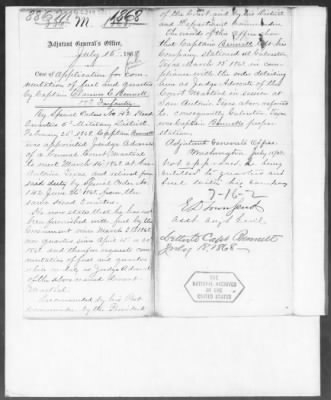 M. 1868
Adjutant General's Office,
July 16" 1868
Case of Application for Com-
mutation of fuel and quarters
by Captain Bennett
17th Infantry.
By Special Orders No. Head
Quarters 5" Military District,
February 1868, Captain Bennett
was appointed Judge Advocate
of a General Court Martial
to meet March 1868 at San
Antonio Texas and relieved from
said duty by Special Orders No.
142 June 1868, from the
same Head Quarters.
He now states that he has not
been furnished with fuel by the
Government since March 1868
nor quarters since April
1868 and therefore requests com-
mutation of fuel and quarters
while on duty as Judge Advocate
of the above named Court
Martial.
Recommended by his Post
Commander, by the President
of the Court and by the District
and Department Commander.
The records of this office show
that Captain Bennett
Company stationed at Galveston
Texas March 1868, in com-
pliance with the order detailing
him as Judge Advocate of the
Court Martial in session at
San Antonio Texas above referred
to, consequently Galveston Texas
was Captain Bennett's proper
station.
Adjutant General's Office
Washington July 1868
Not approved he being
entitled to quarters and
fuel with his company
7-16-
E D Townsend
Asst Adjt Genl.
Letter to Capt Bennett
July 18, 1868
THE NATIONAL ARCHIVES
OF THE
UNITED STATES